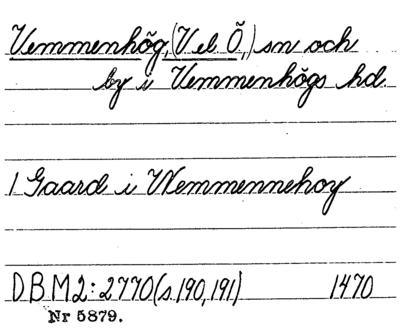 Vemmenhög, (V el. Ö,) sn och
by i Vemmenhögs hd.
1 Gaard i Wemmennehoy
DBM2: 2770 (s. 190, 191) 1470
Nr 5879.